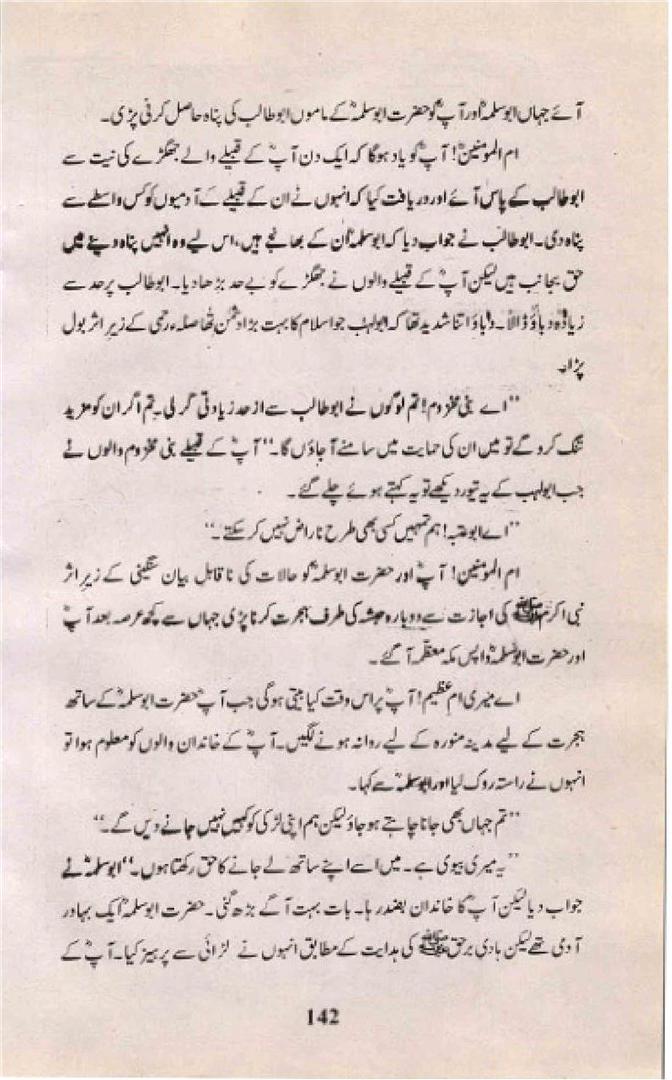 آئے جہاں ابوسلمہؓ اور آپؓ کو حضرت ابوسلمہؓ کے ماموں ابوطالب کی پناہ حاصل کرنی پڑی۔
ام المومنینؓ! آپؓ کو یاد ہوگا کہ ایک دن آپؓ کے قبیلے والے جھگڑے کی نیت سے
ابوطالب کے پاس آئے اور دریافت کیا کہ انہوں نے ان کے قبیلے کے آدمیوں کو کس واسطے سے
پناہ دی۔ ابوطالب نے جواب دیا کہ ابوسلمہؓ ان کے بھانجے ہیں، اس لیے وہ انہیں پناہ دینے میں
حق بجانب ہیں لیکن آپؓ کے قبیلے والوں نے جھگڑے کو بے حد بڑھا دیا۔ ابوطالب پر حد سے
زیادہ دباؤ ڈالا۔ دباؤ اتنا شدید تھا کہ ابولہب جو اسلام کا بہت بڑا دشمن تھا صلہ رحمی کے زیر اثر بول
پڑا۔
’’اے بنی مخزوم! تم لوگوں نے ابوطالب سے از حد زیادتی کر لی۔ تم اگر ان کو مزید
تنگ کرو گے تو میں ان کی حمایت میں سامنے آ جاؤں گا۔‘‘ آپؓ کے قبیلے بنی مخزوم والوں نے
جب ابولہب کے یہ تیور دیکھے تو یہ کہتے ہوئے چلے گئے۔
’’اے ابوعتبہ! ہم تمہیں کسی بھی طرح ناراض نہیں کر سکتے۔‘‘
ام المومنینؓ! آپؓ اور حضرت ابوسلمہؓ کو حالات کی ناقابل بیان سنگینی کے زیر اثر
نبی اکرم ﷺ کی اجازت سے دوبارہ حبشہ کی طرف ہجرت کرنا پڑی جہاں سے کچھ عرصہ بعد آپؓ
اور حضرت ابوسلمہؓ واپس مکہ معظمہ آ گئے۔
اے میری ام عظیم! آپؓ پر اس وقت کیا بیتی ہوگی جب آپؓ حضرت ابوسلمہؓ کے ساتھ
ہجرت کے لیے مدینہ منورہ کے لیے روانہ ہونے لگیں۔ آپؓ کے خاندان والوں کو معلوم ہوا تو
انہوں نے راستہ روک لیا اور ابوسلمہؓ سے کہا۔
’’تم جہاں بھی جانا چاہتے ہو جاؤ لیکن ہم اپنی لڑکی کو کہیں نہیں جانے دیں گے۔‘‘
’’یہ میری بیوی ہے۔ میں اسے اپنے ساتھ لے جانے کا حق رکھتا ہوں۔‘‘ ابوسلمہؓ نے
جواب دیا لیکن آپؓ کا خاندان بضد رہا۔ بات بہت آگے بڑھ گئی۔ حضرت ابوسلمہؓ ایک بہادر
آدمی تھے لیکن ہادی برحق ﷺ کی ہدایت کے مطابق انہوں نے لڑائی سے پرہیز کیا۔ آپؓ کے
142